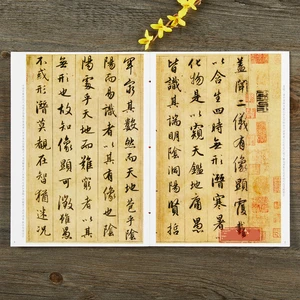 蓋聞二儀有像顯覆載
以含生四時無形潛寒暑
化物是以窺天鑑地庸愚
皆識其端明陰洞陽賢哲
罕窮其數然而天地苞乎陰
陽而易識者以其
陽處乎天地而難窮者以其
無形也故知像顯可徵雖愚
不惑形潛莫覩在智猶迷況